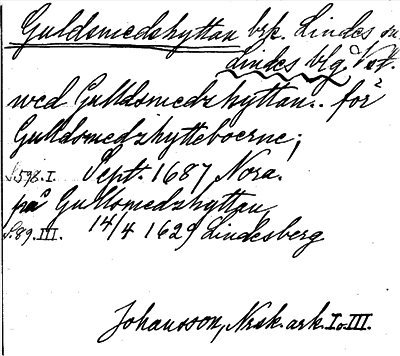 Guldsmedshyttan brk. Lindes sn
Lindes blg. Vstm.
wed Gulldsmedzhyttan.. för
Gulldsmedzhytteboerne;
S.598.I. Sept. 1687 Nora.
på Gullsmedzhyttan
S.89.III. 14/4 1629 Lindesberg
Johansson, Nrsk. ark. I o. III.